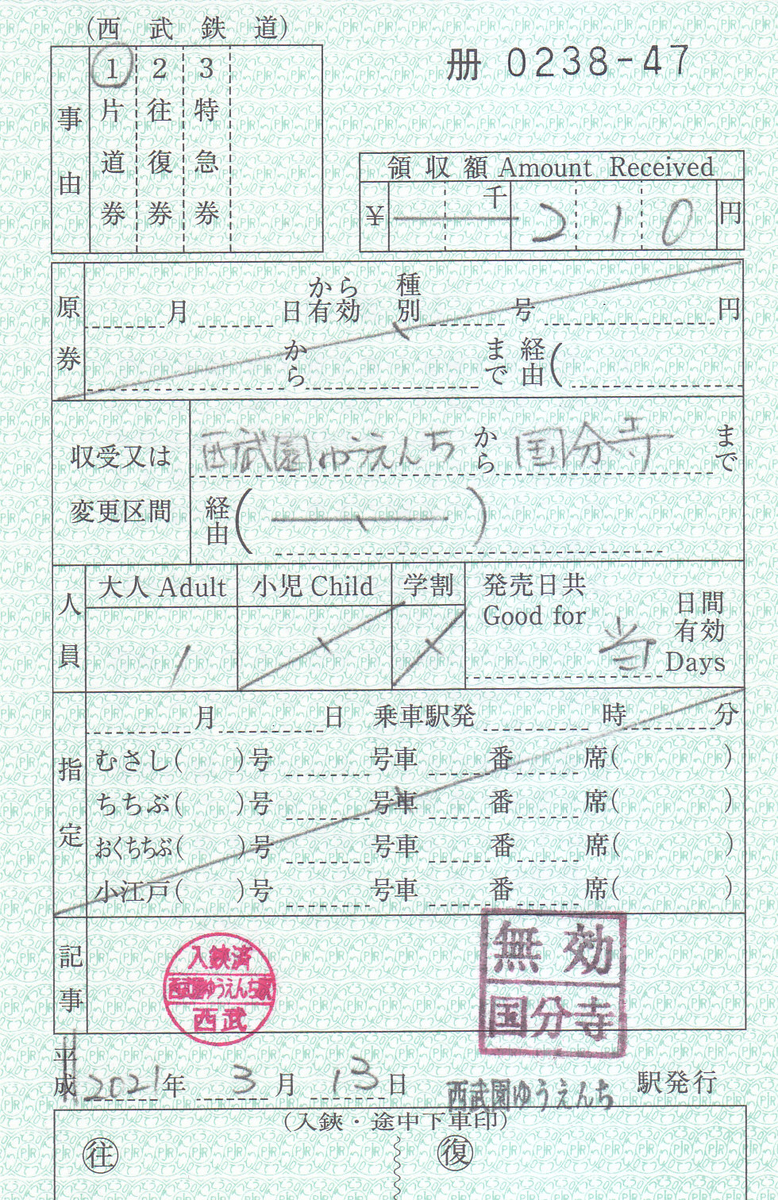 (西武鉄道)
冊 0238-47
事由
1 片道券
2 往復券
3 特急券
領収額 Amount Received
¥ 千 210 円
原券
月 日から有効 種別 号 円
から まで 経由(
収受又は変更区間
西武園ゆうえんち から 国分寺 まで
経由( )
人員
大人 Adult 小児 Child 学割 発売日共 日間有効
1 Good for 当 Days
指定
月 日 乗車駅発 時 分
むさし( )号 号車 番 席( )
ちちぶ( )号 号車 番 席( )
おくちちぶ( )号 号車 番 席( )
小江戸( )号 号車 番 席( )
記事
入鋏済
西武園ゆうえんち駅
西武
無効
国分寺
平成 2021年 3月 13日 西武園ゆうえんち 駅発行
(入鋏・途中下車印)
往 復